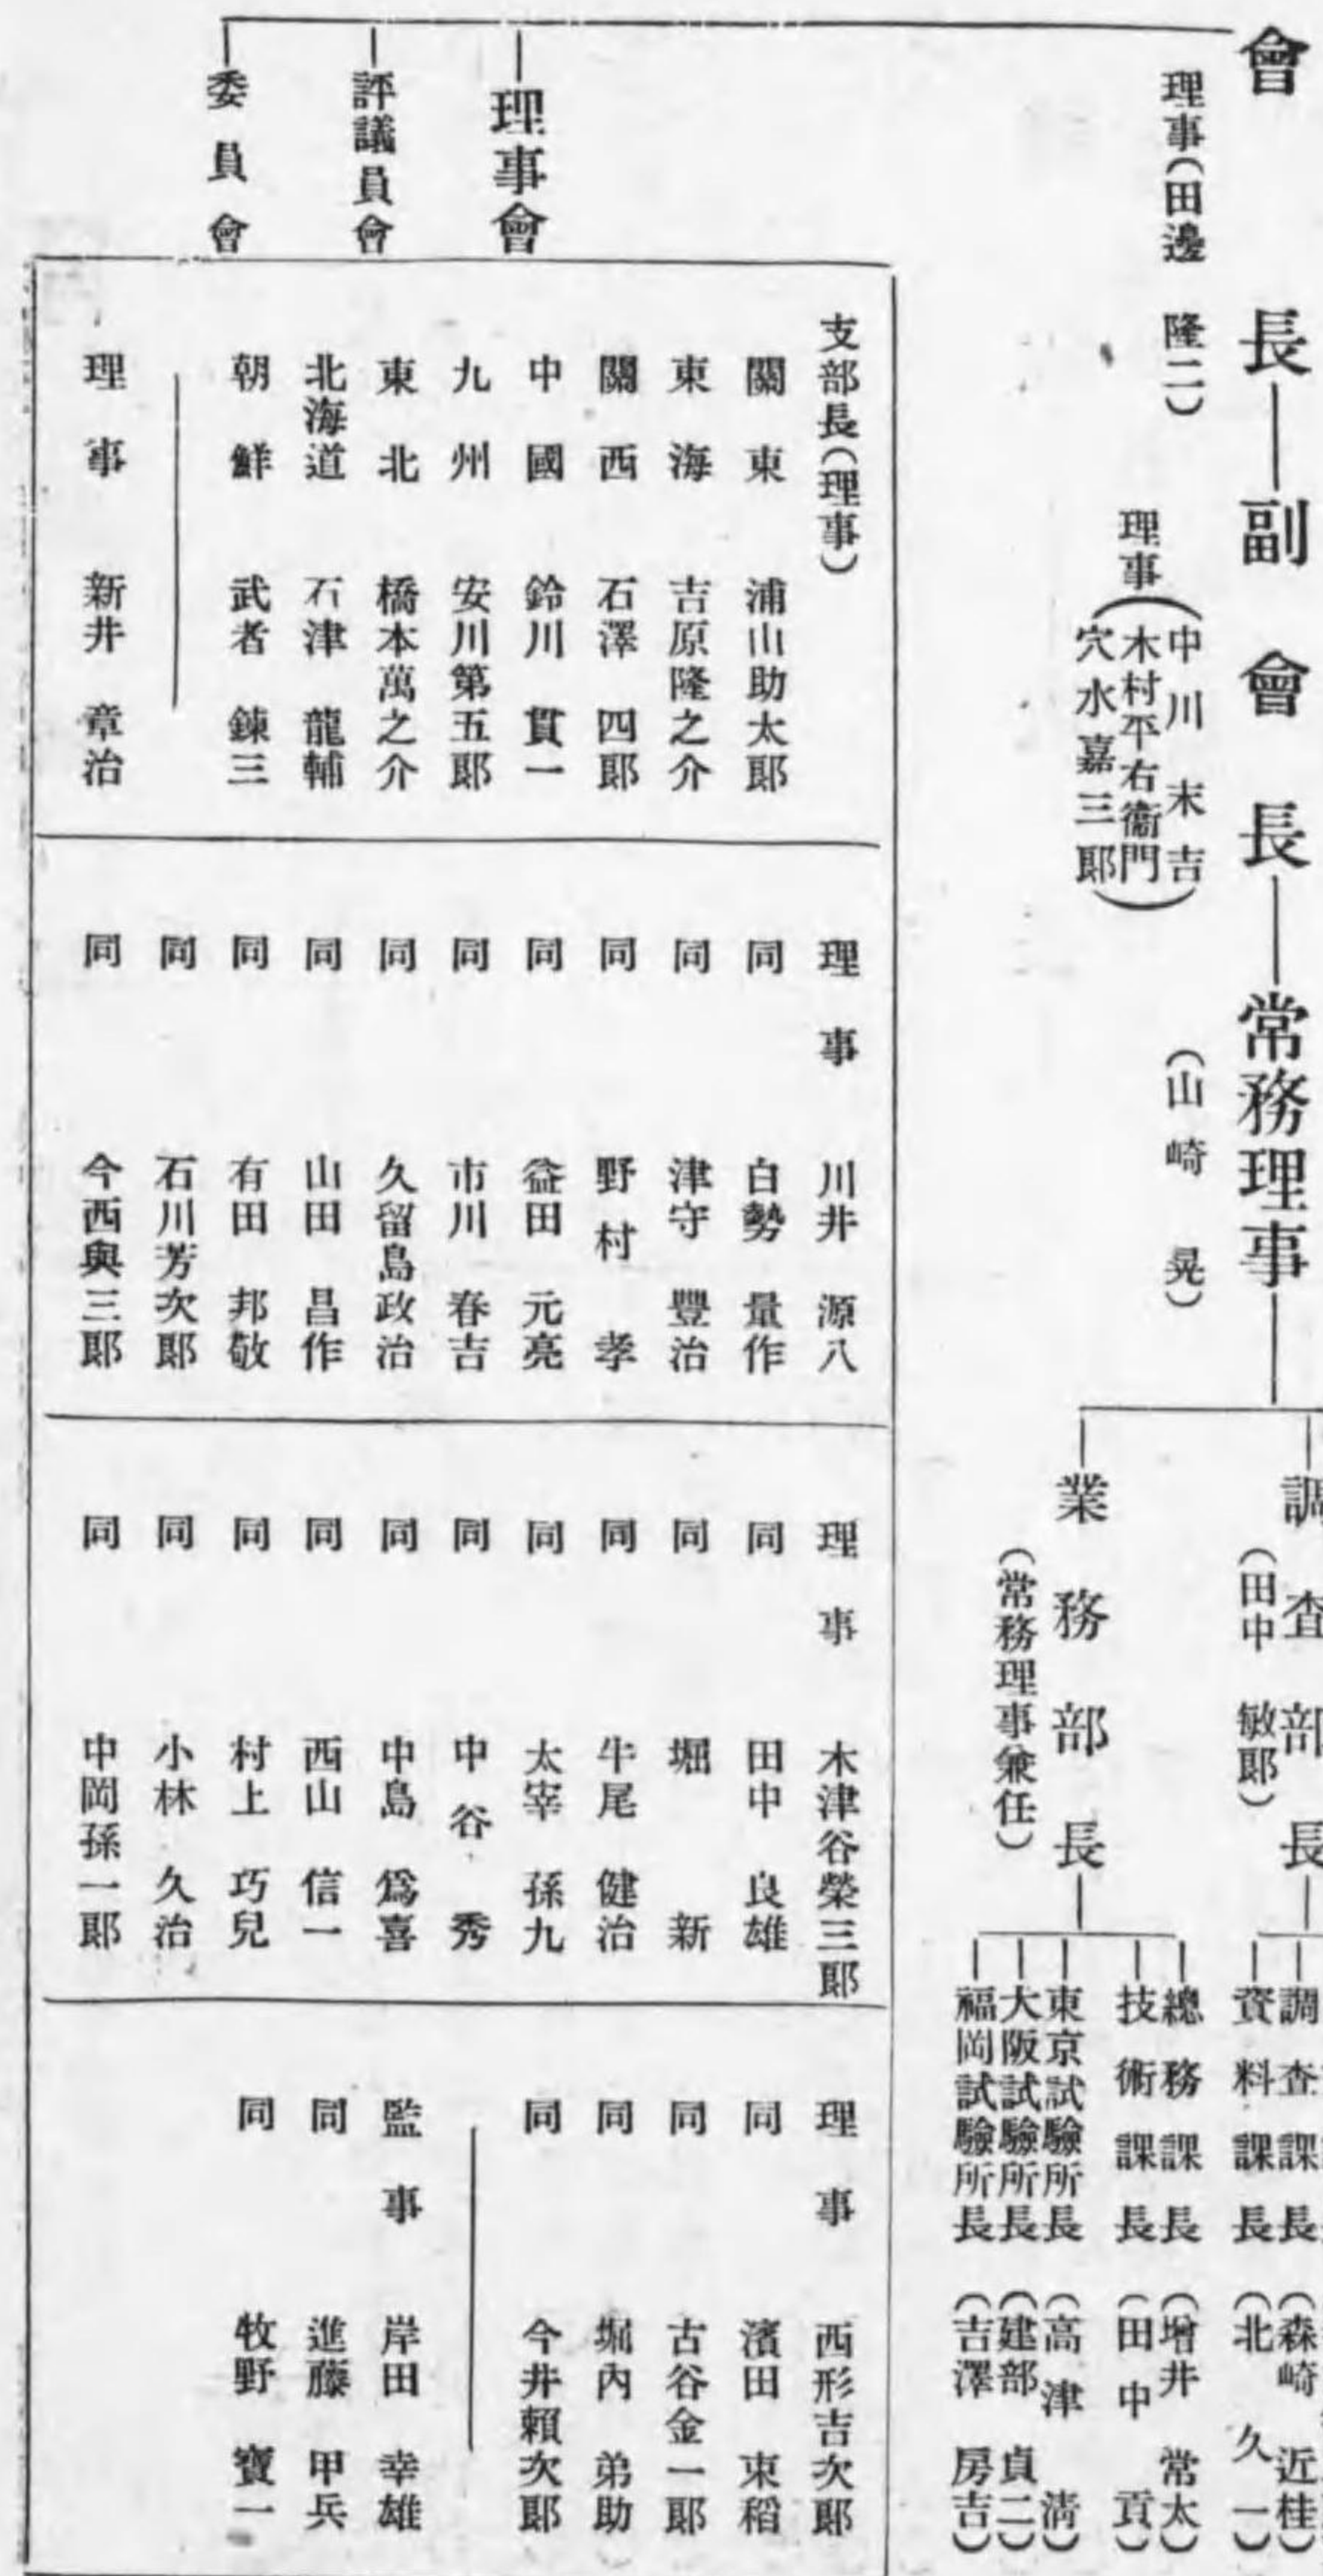 會長―副會長―常務理事
調査部長
(田中 敏郎)
調査課長 (森崎 近桂)
資料課長 (北 久一)
理事(田邊 隆二)
理事(中川 末吉
木村平右衞門
穴水嘉三郎)
(山崎 晃)
業務部長
(常務理事兼任)
總務課長 (增井 常太)
技術課長 (田中 貢)
東京試驗所長 (高津 淸)
大阪試驗所長 (建部 貞二)
福岡試驗所長 (吉澤 房吉)
理事會
評議員會
委員會
支部長(理事)
關東 浦山助太郎
東海 吉原隆之介
關西 石澤 四郎
中國 鈴川 貫一
九州 安川第五郎
東北 橋本萬之介
北海道 石津 龍輔
朝鮮 武者 鍊三
理事 新井 章治
理事 川井 源八
同 白勢 量作
同 津守 豐治
同 野村 孝
同 益田 元亮
同 市川 春吉
同 久留島政治
同 山田 昌作
同 有田 邦敬
同 石川芳次郎
同 今西與三郎
理事 木津谷榮三郎
同 田中 良雄
同 堀 新
同 牛尾 健治
同 太宰 孫九
同 中谷 秀
同 中島 爲喜
同 西山 信一
同 村上 巧兒
同 小林 久治
同 中岡孫一郎
理事 西形吉次郎
同 濱田 東稻
同 古谷金一郎
同 堀內 弟助
同 今井賴次郎
監事 岸田 幸雄
同 進藤 甲兵
同 牧野 寶一